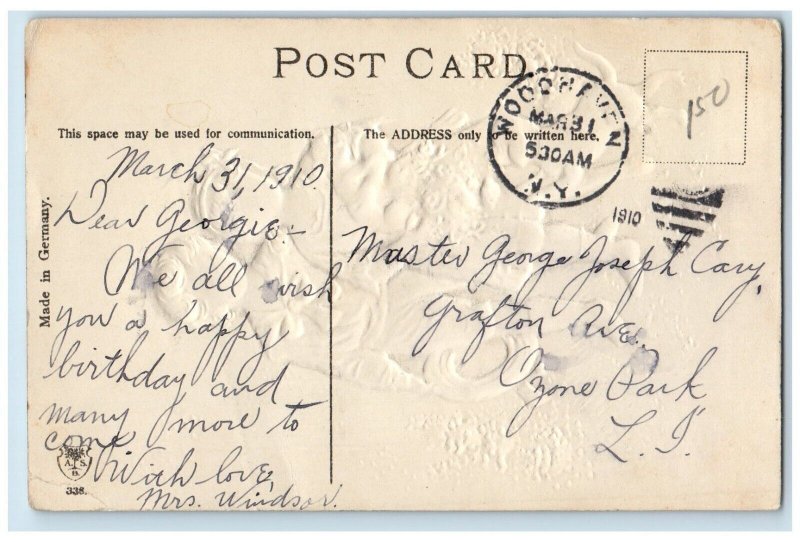 POST CARD
WOODHAVEN
MAR 31
530AM
N.Y.
1910
150
This space may be used for communication.
The ADDRESS only to be written here.
Made in Germany.
March 31, 1910.
Dear Georgie:-
We all wish
you a happy
birthday and
many more to
come
With love,
Mrs. Windsor.
Master George Joseph Cary,
Grafton Ave.
Ozone Park
L. I.
A. S.
B.
338.